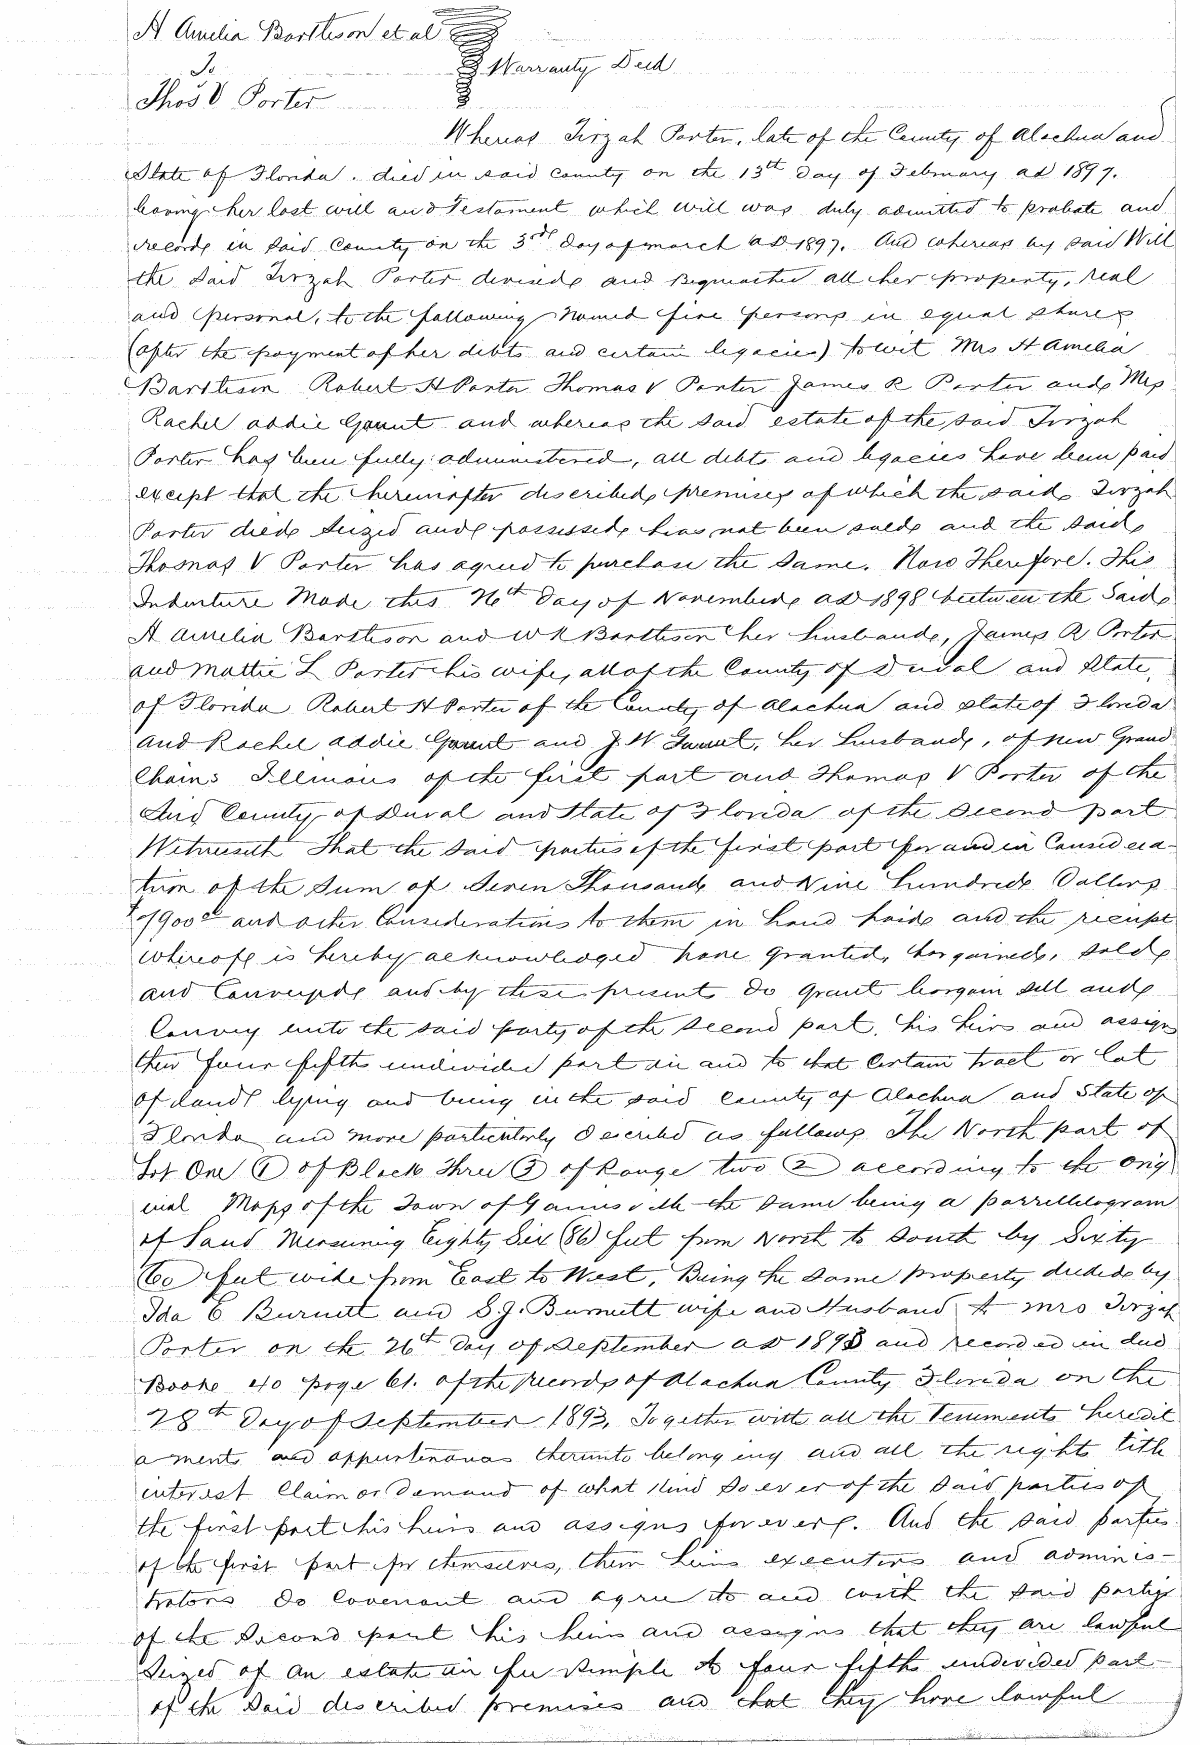 H Amelia Barttison et al
To
Warranty Deed
Thos V Porter
Whereas Tirzah Porter, late of the County of Alachua and
State of Florida. died in said county on the 13th Day of February AD 1897.
leaving her last will and Testament which will was duly admitted to probate and
records in said County on the 3rd Day of March AD 1897. And whereas by said Will
the said Tirzah Porter devised and Bequeathed all her property, real
and personal, to the following Named five persons in equal shares
(after the payment of her debts and certain legacies) to wit Mrs H Amelia
Barttison Robert H Porter Thomas V Porter James R Porter and Mrs
Rachel Addie Gaunt and whereas the said estate of the said Tirzah
Porter has been fully administered, all debts and legacies have been paid
except that the hereinafter described premises of which the said Tirzah
Porter died Seized and possessed has not been sold and the said
Thomas V Porter has agreed to purchase the same. Now Therefore. This
Indenture Made this 26th Day of November AD 1898 between the Said
H Amelia Barttison and W R Barttison her husband, James R Porter
and Mattie L Porter his wife, all of the County of Duval and State,
of Florida Robert H Porter of the County of Alachua and state of Florida
and Rachel Addie Gaunt and J. W Gaunt, her husband, of New Grand
Chain: Illinois of the first part and Thomas V Porter of the
Said County of Duval and State of Florida of the Second part
Witnesseth That the Said parties of the first part for and in Considera-
tion of the Sum of Seven Thousand and Nine hundred Dollars
$7900 00 and other Considerations to them in hand paid and the receipt
whereof is hereby acknowledged have granted, bargained, sold
and Conveyed and by these presents Do grant bargain sell and
Convey unto the said party of the Second part, his heirs and assigns
their four fifths undivided part in and to that Certain tract or lot
of land lying and being in the said County of Alachua and State of
Florida and more particularly Described as follows The North part of
Lot One (1) of Block Three (3) of Range two (2) according to the orig
inal Maps of the Town of Gainesville the Same being a parrellelogram
of Land Measuring Eighty Six (86) feet from North to South by Sixty
(60) feet wide from East to West, Being the same property deeded by
Ida E Burnett and S. J. Burnett wife and Husband to Mrs Tirzah
Porter on the 26th Day of September AD 1893 and recorded in deed
Booke 40 page 61. of the records of Alachua County Florida on the
28th Day of September 1893, Together with all the Tenements heredit
aments and appurtenances thereunto belonging and all the right title
interest Claim or Demand of what kind So ever of the Said parties of
the first part his heirs and assigns forever. And the said parties
of the first part for themselves, their heirs executors and adminis-
trators Do Covenant and agree to and with the said party
of the Second part his heirs and assigns that they are lawful
Seized of an estate in fee simple to four fifths undivided part
of the Said described premises and that they have lawful